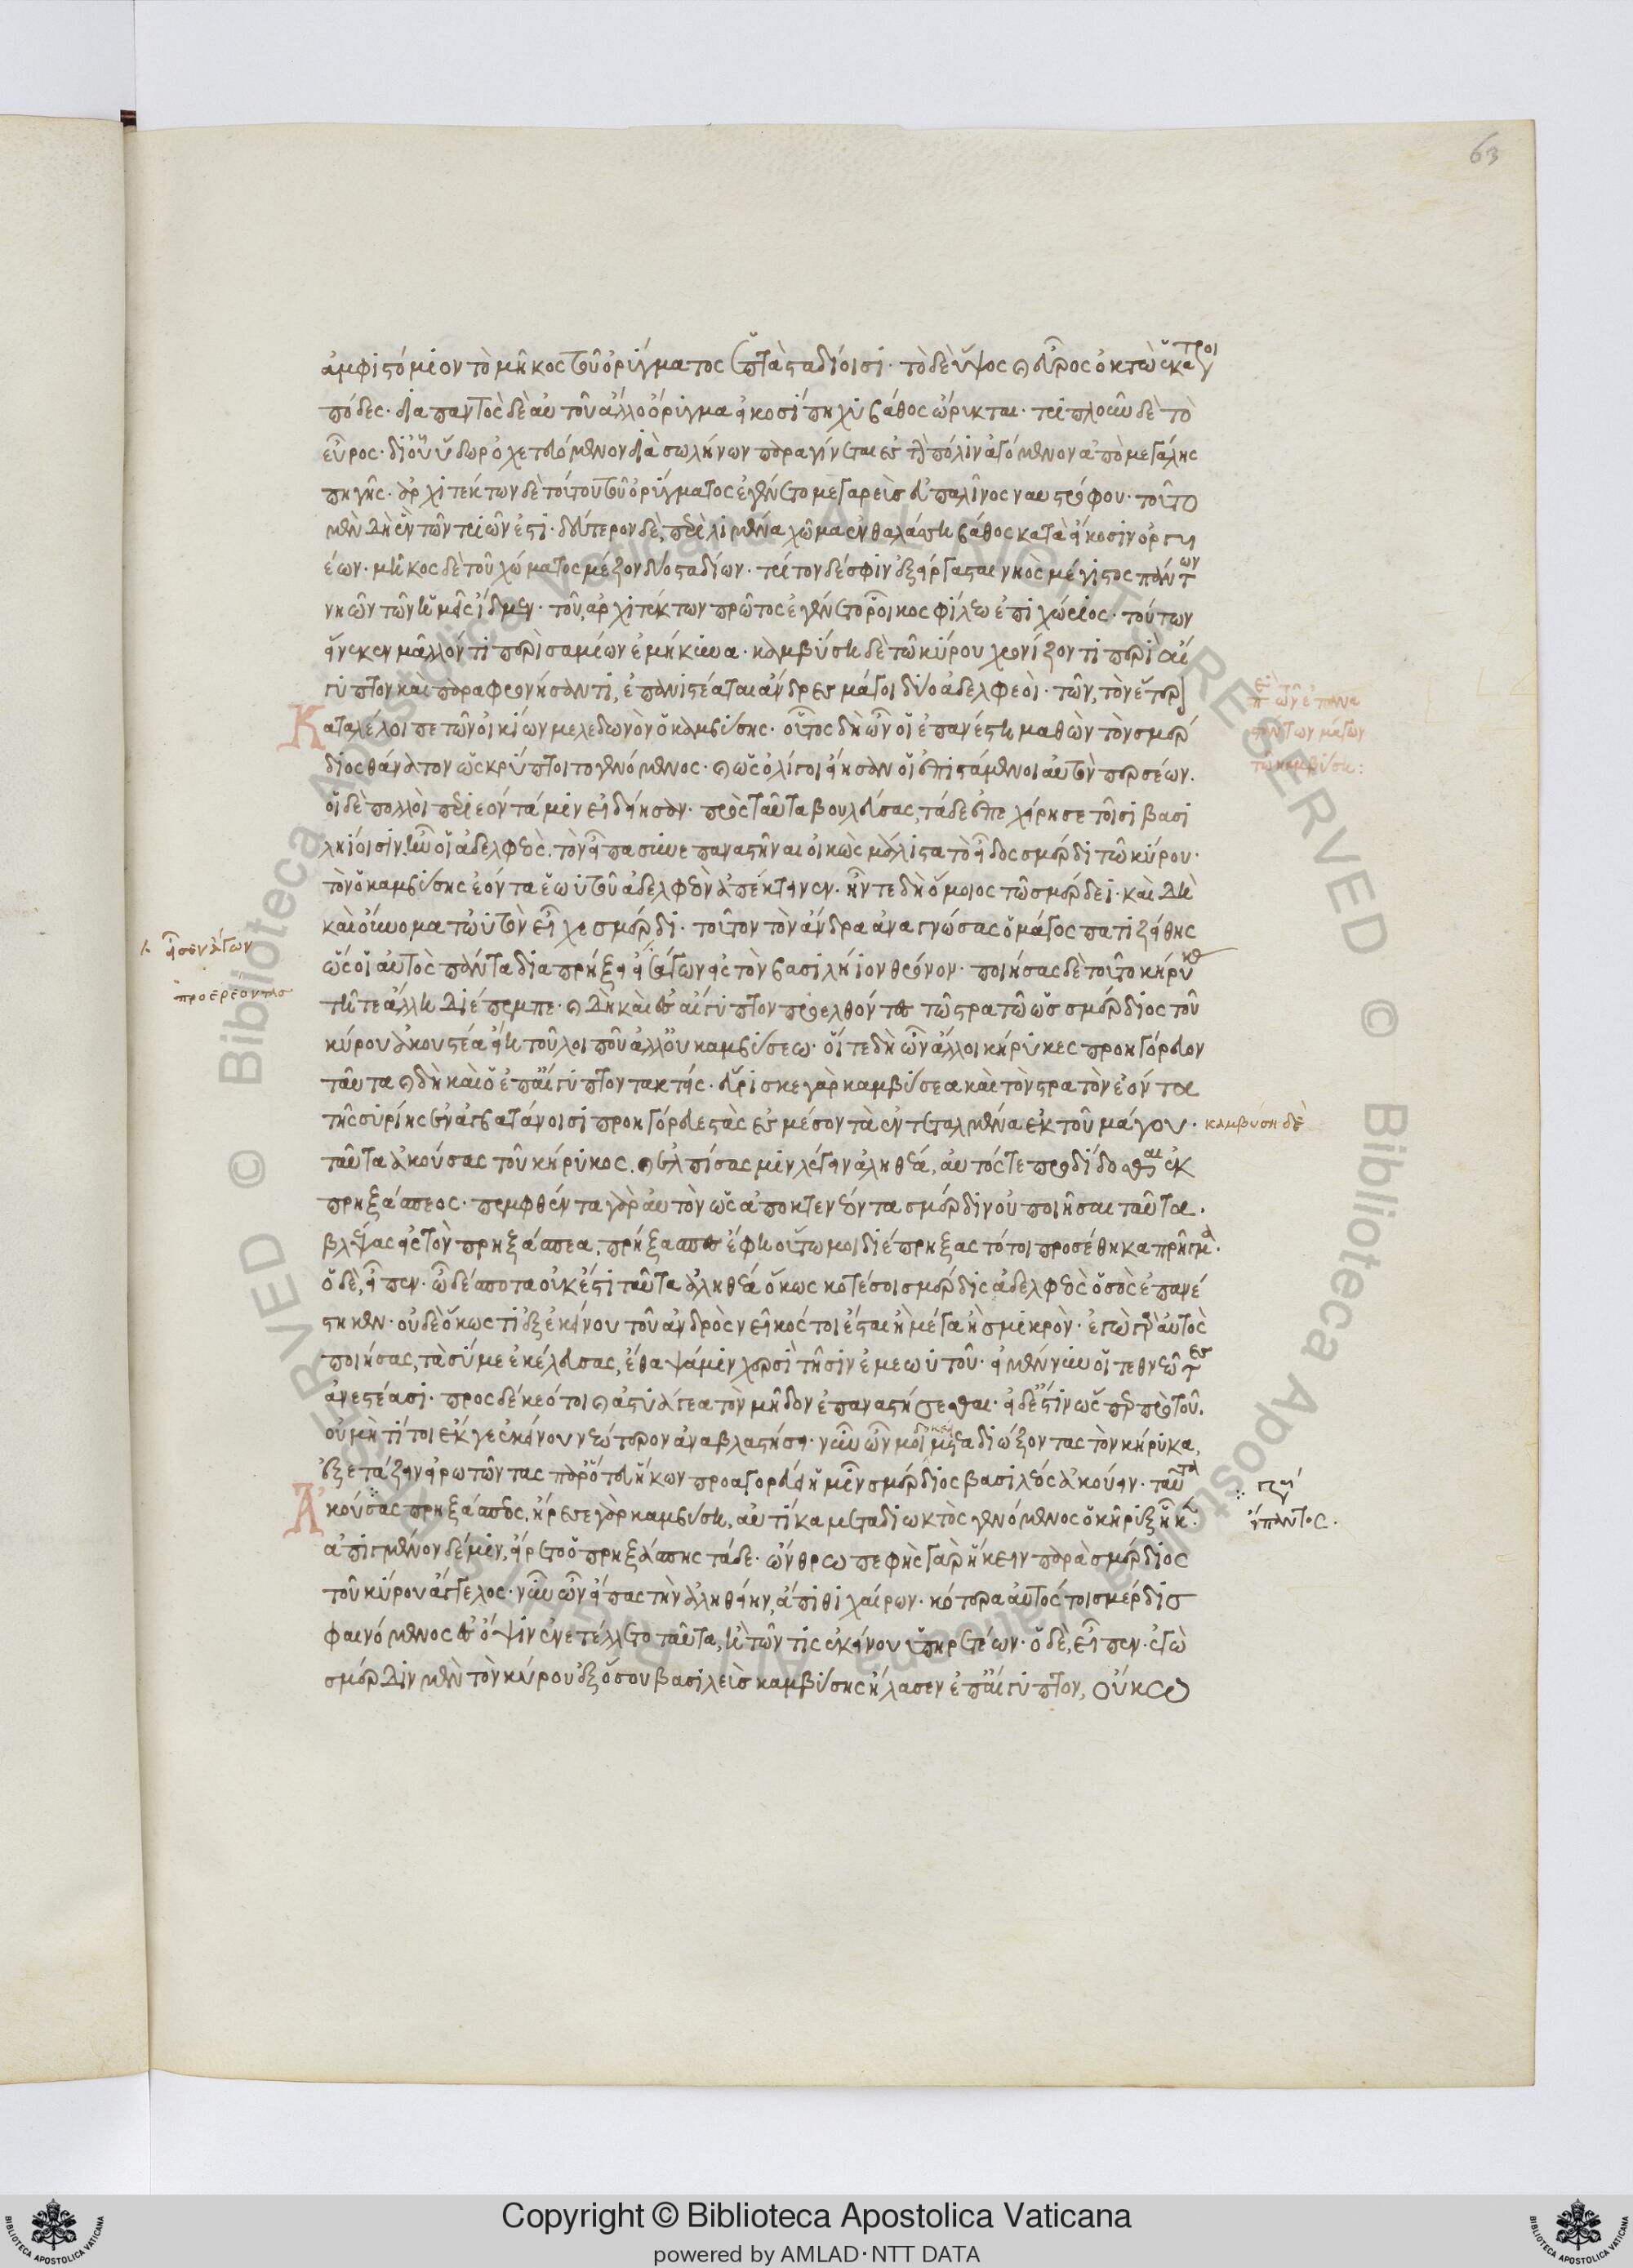 63
ἀμφίστομον τὸ μῆκος τοῦ ὀρύγματος ἑπτὰ στάδιοί εἰσι· τὸ δὲ ὕψος καὶ εὖρος ὀκτὼ ἑκάτεροι
πόδες· διὰ παντὸς δὲ αὐτοῦ ἄλλο ὄρυγμα εἰκοσίπηχυ βάθος ὤρυκται· τρίπλουν δὲ τὸ
εὖρος· δι' οὗ ὕδωρ ὀχετευόμενον διὰ σωλήνων παραγίνεται ἐς τὴν πόλιν ἀγόμενον ἀπὸ μεγάλης
πηγῆς· ἀρχιτέκτων δὲ τούτου τοῦ ὀρύγματος ἐγένετο μεγαρεὺς εὐπαλῖνος ναυστρόφου· τοῦτο
μὲν δὴ ἓν τῶν τριῶν ἐστί· δεύτερον δὲ, περὶ λιμένα χῶμα ἐν θαλάσσῃ βάθος κατὰ εἴκοσιν ὀργυι
έων· μῆκος δὲ τοῦ χώματος μέζον δύο σταδίων· τρίτον δέ σφιν ἐξέργασται νηὸς μέγιστος πάντων
νηῶν τῶν ἡμεῖς ἴδμεν· τοῦ, ἀρχιτέκτων πρῶτος ἐγένετο ῥοῖκος φίλεω ἐπιχώριος· τούτων
εἵνεκεν μᾶλλόν τι περὶ σαμίων ἐμήκυνα· καμβύσῃ δὲ τῷ κύρου χρονίζοντι περὶ αἴ
γυπτον καὶ παραφρονήσαντι, ἐπανιστέαται ἄνδρες μάγοι δύο ἀδελφεοὶ· τῶν, τὸν ἕτερον
Καταλελοίπε τῶν οἰκίων μελεδωνὸν ὁ καμβύσης· οὗτος δὴ ὦν οἱ ἐπανέστη μαθὼν τὸν σμέρ
διος θάνατον ὡς κρύπτοιτο γενόμενος· καὶ ὡς ὀλίγοι ἦσαν οἱ ἐπιστάμενοι αὐτὸν περσέων.
οἱ δὲ πολλοὶ περιεόντα μιν εἰδείησαν· πρὸς ταῦτα βουλεύσας, τάδε ἐπεχείρησε τοῖσι βασι
ληίοισιν. ἦν οἱ ἀδελφεὸς. τὸν εἶπά οἱ συνεπαναστῆναι οἰκὼς μάλιστα τὸ εἶδος σμέρδι τῷ κύρου·
τὸν ὁ καμβύσης ἐόντα ἑωυτοῦ ἀδελφεὸν ἀπέκτεινεν· ἦν τε δὴ ὅμοιος τῷ σμέρδει· καὶ δὴ
καὶ οὔνομα τὠυτὸν εἶχε σμέρδι· τοῦτον τὸν ἄνδρα ἀναγνώσας ὁ μάγος πατιζείθης
ὥς οἱ αὐτὸς πάντα διαπρήξει εἷσε ἄγων ἐς τὸν βασιλήιον θρόνον· ποιήσας δὲ τοῦτο κήρυκας
τῇ τε ἄλλῃ διέπεμπε· καὶ δὴ καὶ ἐς αἴγυπτον προελθόντα τῷ στρατῷ ὡς σμέρδιος τοῦ
κύρου ἀκουστέα εἴη τοῦ λοιποῦ ἀλλ' οὐ καμβύσεω· οἵ τε δὴ ὦν ἄλλοι κήρυκες προηγόρευον
ταῦτα καὶ δὴ καὶ ὁ ἐπ' αἴγυπτον ταχθείς· εὕρισκε γὰρ καμβύσεα καὶ τὸν στρατὸν ἐόντα
τῆς συρίης ἐν ἀγβατάνοισι προηγόρευε στὰς ἐς μέσον τὰ ἐντεταλμένα ἐκ τοῦ μάγου·
ταῦτα ἀκούσας τοῦ κήρυκος. καὶ ἐλπίσας μιν λέγειν ἀληθέα, αὐτός τε προδίδοσθαι ἐκ
πρηξάσπεος· πεμφθέντα γὰρ αὐτὸν ὡς ἀποκτενέοντα σμέρδιν οὐ ποιῆσαι ταῦτα·
βλέψας ἐς τὸν πρηξάσπεα, πρήξασπες ἔφη οὕτω μοι διέπρηξας τό τοι προσέθηκα πρῆγμα·
ὁ δὲ, εἶπεν· ὦ δέσποτα οὐκ ἔστι ταῦτα ἀληθέα ὅκως κοτέ σοι σμέρδις ἀδελφεὸς ὁ σὸς ἐπανέ
στηκεν· οὐδὲ ὅκως τι ἐξ ἐκείνου τοῦ ἀνδρὸς νεῖκός τοι ἔσται ἢ μέγα ἢ σμικρὸν· ἐγὼ γὰρ αὐτὸς
ποιήσας, τὰ σύ με ἐκέλευσας, ἔθαψά μιν χερσὶ τῇσιν ἐμεωυτοῦ· εἰ μέν νυν οἱ τεθνεῶτες
ἀνεστέασι· προσδέκεό τοι καὶ ἀστυάγεα τὸν μῆδον ἐπαναστήσεσθαι· εἰ δ' ἔστιν ὡς πρὸ τοῦ.
οὐ μή τί τοι ἔκ γε ἐκείνου νεώτερον ἀναβλαστήσῃ· νῦν ὦν μοι δοκεῖ μεταδιώξοντας τὸν κήρυκα,
ἐξετάζειν εἰρωτῶντας παρ' ὅτευ ἥκων προαγορεύει ἡμῖν σμέρδιος βασιλέος ἀκούειν· ταῦτα
Ἀκούσας πρηξάσπεος, ἤρεσε γὰρ καμβύσῃ, αὐτίκα μεταδίωκτος γενόμενος ὁ κῆρυξ ἧκε.
ἀπιγμένον δέ μιν, εἴρετο ὁ πρηξάσπης τάδε· ὤνθρωπε φὴς γὰρ ἥκειν παρὰ σμέρδιος
τοῦ κύρου ἄγγελος· νῦν ὦν εἴπας τὴν ἀληθείην, ἄπιθι χαίρων· κότερα αὐτός τοι σμέρδις
φαινόμενος ἐς ὄψιν ἐνετέλλετο ταῦτα, ἢ τῶν τις ἐκείνου ὑπηρετέων· ὁ δὲ, εἶπεν· ἐγὼ
σμέρδιν μὲν τὸν κύρου ἐξ ὅσου βασιλεὺς καμβύσης ἤλασεν ἐπ' αἴγυπτον, οὔκω
εἷσεν ἄγων
προερέοντας
καμβύση δὲ